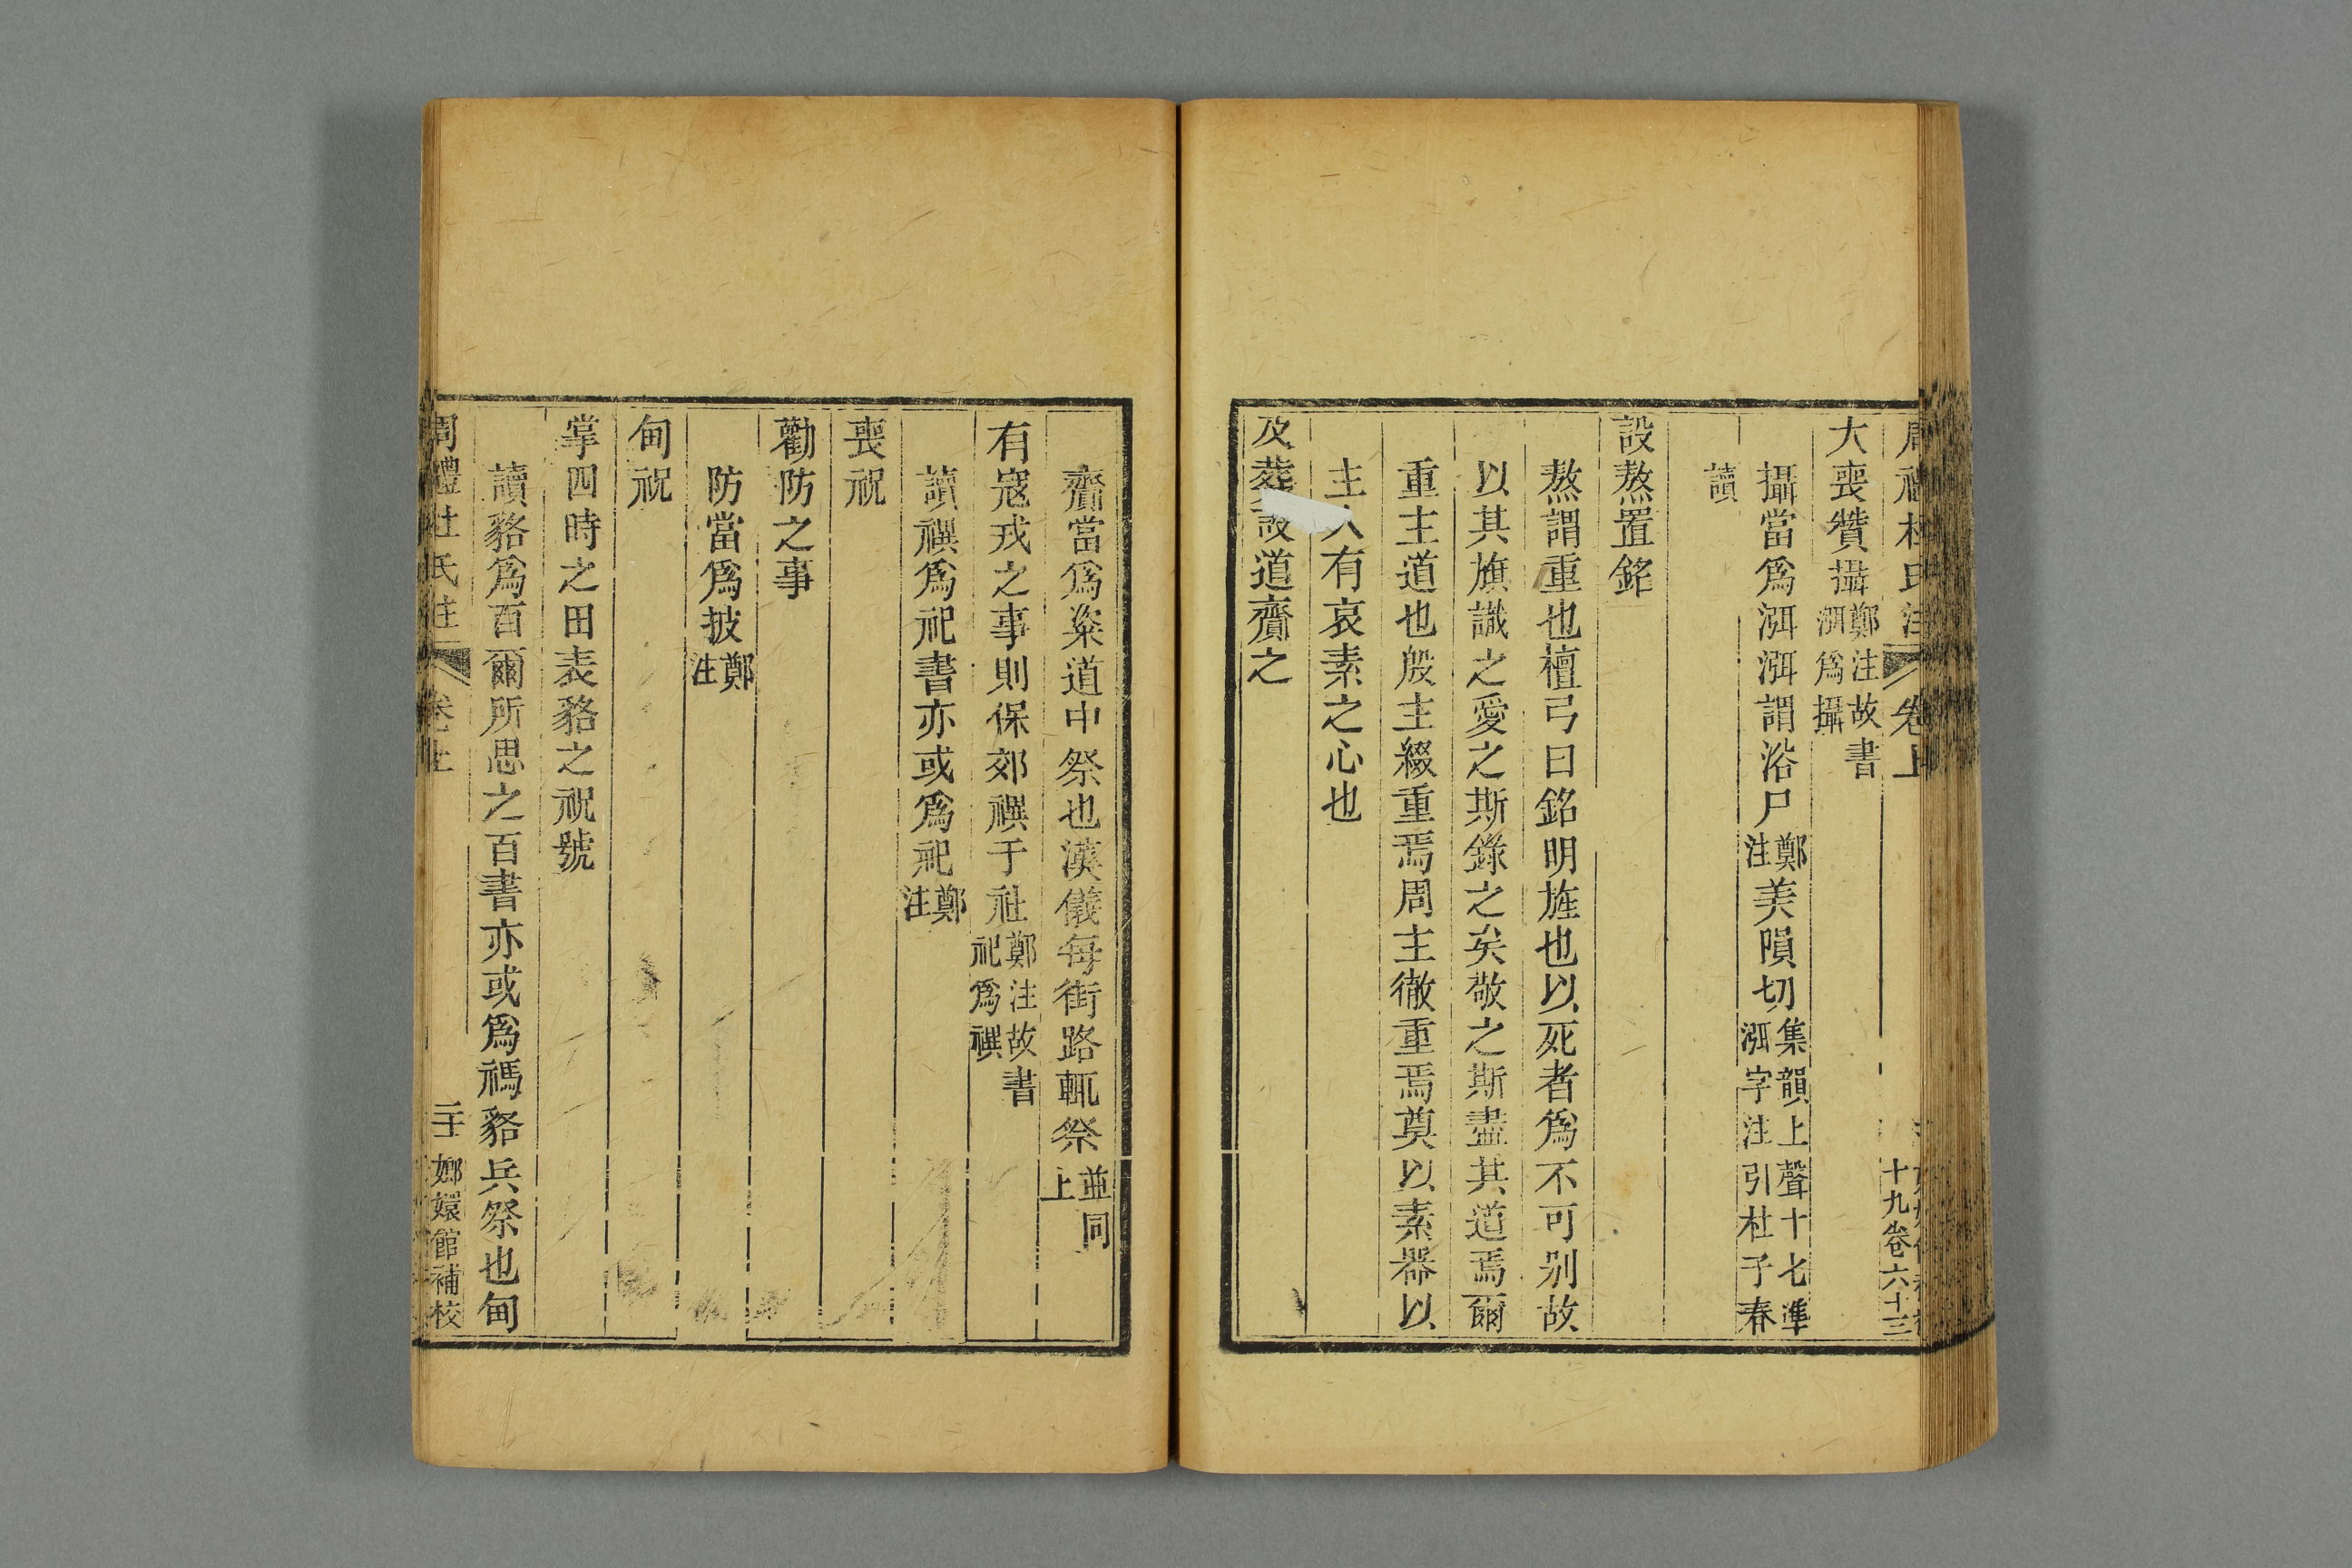 大喪贊攝鄭注故書湣爲攝
攝當爲湣湣謂浴尸鄭注美隕切集韻上聲十七準湣字注引杜子春
讀
設熬置銘
熬謂重也檀弓曰銘明旌也以死者爲不可别故
以其旗識之愛之斯錄之矣敬之斯盡其道焉爾
重主道也殷主綴重焉周主徹重焉奠以素器以
主人有哀素之心也
及葬設道齎之
齎當爲粢道中祭也漢儀每街路輒祭並同上
有寇戎之事則保郊禩于社鄭注故書祀爲禩
讀禩爲祀書亦或爲祀鄭注
喪祝
勸防之事
防當爲披鄭注
甸祝
掌四時之田表貉之祝號
讀貉爲百爾所思之百書亦或爲禡貉兵祭也甸
周禮杜氏注 卷上 二十 嫏嬛館補校